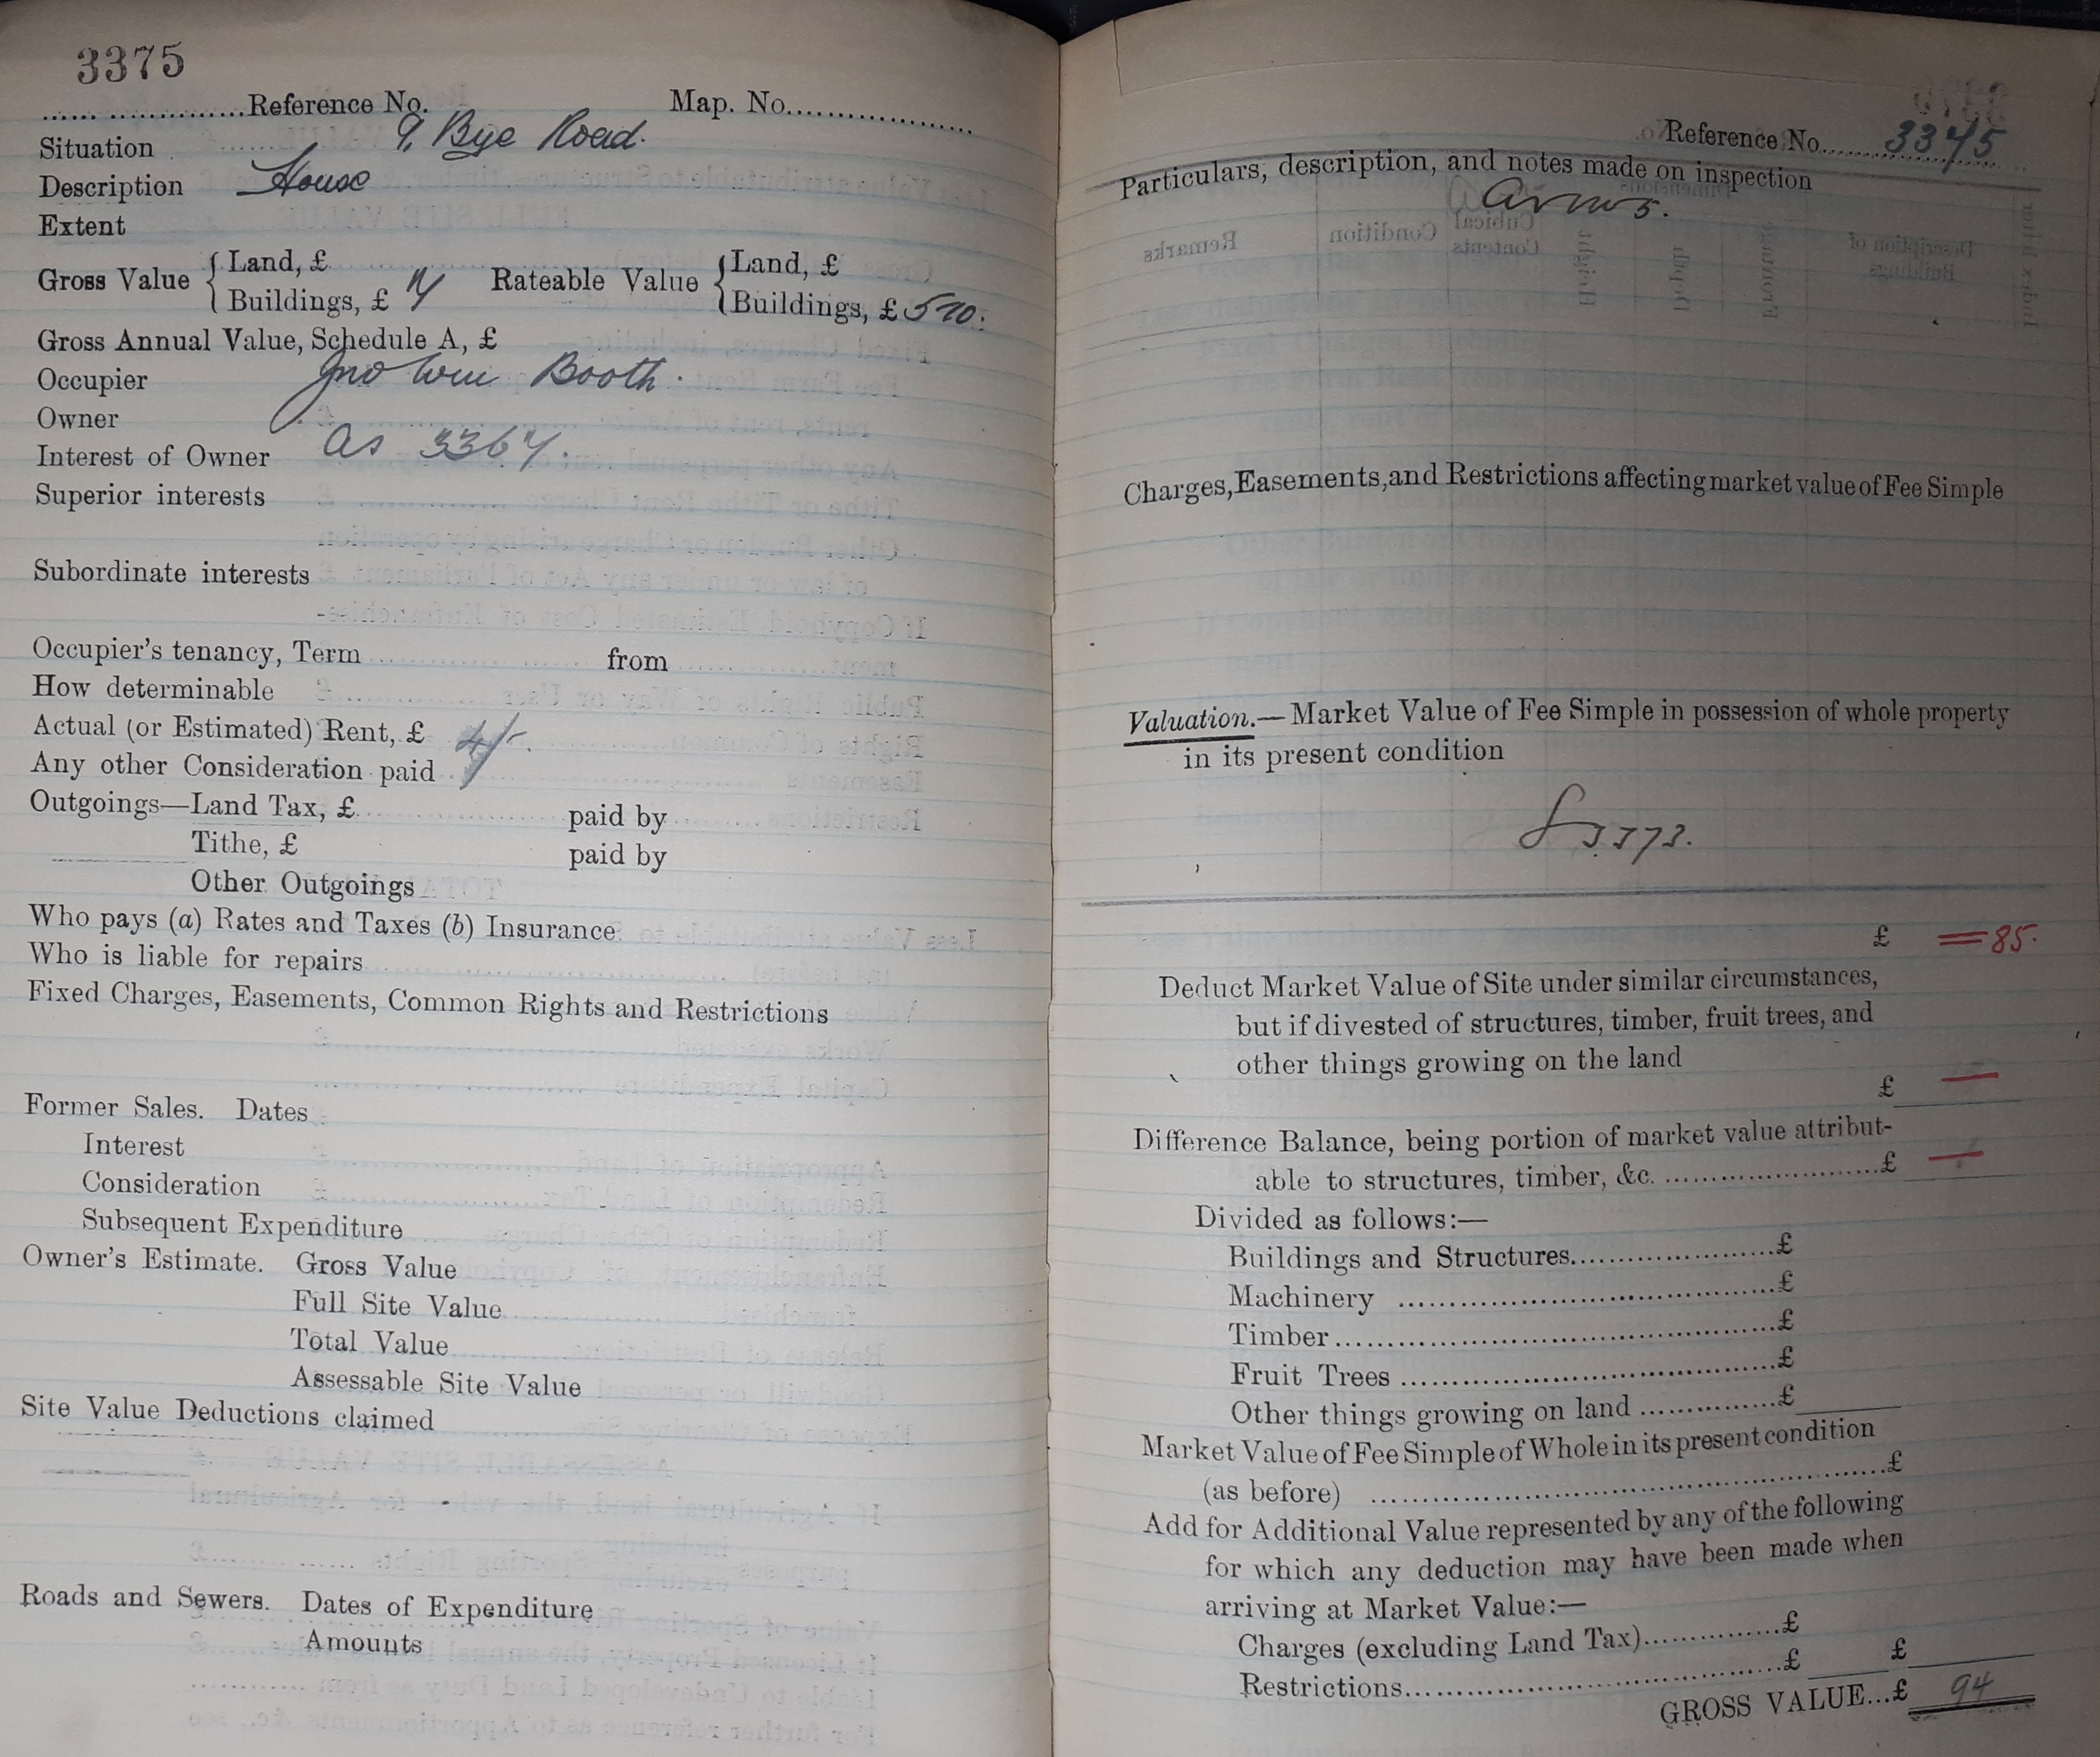 3375
Reference No. Map. No.
Situation 9, Bye Road.
Description House
Extent
Gross Value { Land, £ Rateable Value { Land, £
Buildings, £ 7 Buildings, £ 5 10.
Gross Annual Value, Schedule A, £
Occupier Jno Wm Booth.
Owner
Interest of Owner as 3367.
Superior interests
Subordinate interests
Occupier's tenancy, Term from
How determinable
Actual (or Estimated) Rent, £ 4/-.
Any other Consideration paid
Outgoings—Land Tax, £ paid by
Tithe, £ paid by
Other Outgoings
Who pays (a) Rates and Taxes (b) Insurance
Who is liable for repairs
Fixed Charges, Easements, Common Rights and Restrictions
Former Sales. Dates
Interest
Consideration
Subsequent Expenditure
Owner's Estimate. Gross Value
Full Site Value
Total Value
Assessable Site Value
Site Value Deductions claimed
Roads and Sewers. Dates of Expenditure
Amounts
Reference No. 3375
Particulars, description, and notes made on inspection
Charges, Easements, and Restrictions affecting market value of Fee Simple
Valuation.—Market Value of Fee Simple in possession of whole property
in its present condition
3373.
£ = 85.
Deduct Market Value of Site under similar circumstances,
but if divested of structures, timber, fruit trees, and
other things growing on the land
£ —
Difference Balance, being portion of market value attribut-
able to structures, timber, &c. £ —
Divided as follows:—
Buildings and Structures £
Machinery £
Timber £
Fruit Trees £
Other things growing on land £
Market Value of Fee Simple of Whole in its present condition
(as before) £
Add for Additional Value represented by any of the following
for which any deduction may have been made when
arriving at Market Value:—
Charges (excluding Land Tax) £
Restrictions £ £
GROSS VALUE...£ 94